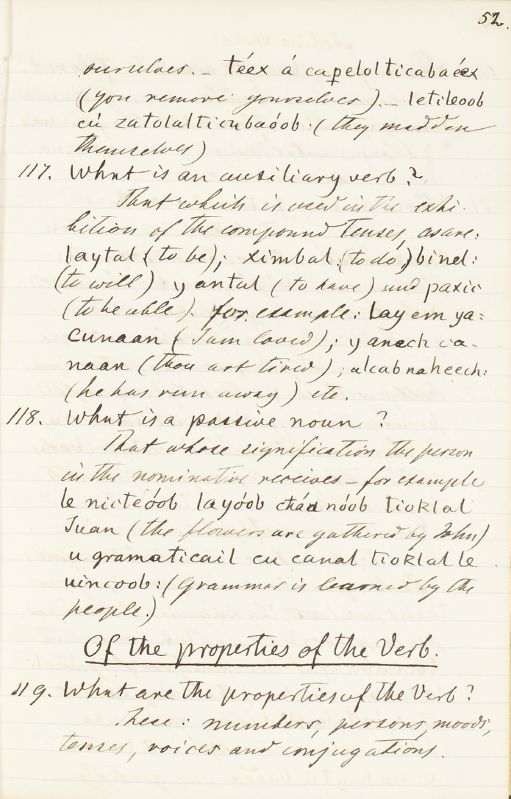 52.
ourselves. – téex á capelolticabaéex
(you remove yourselves) – letileoob
cú zatolalticubaóob (they madden
themselves)
117. What is an auxiliary verb?
That which is used in the exhi-
bition of the compound tenses, as are:
laytal (to be); ximbal (to do) binel:
(to will) yantal (to have) and paxic
(to be able). for example: Lay em ya=
cunaan (I am loved); yanech ca-
naan (thou art tired); alcabnaheech:
(he has run away) etc.
118. What is a passive noun?
That whose signification the person
in the nominative receives – for example
le nicteóob layóob nóob tioklal
Juan (the flowers are gathered by John)
u gramaticail cu canal tioklal le
uincoob: (Grammar is learned by the
people.)
Of the properties of the Verb.
119. What are the properties of the Verb?
These: numbers, persons, moods,
tenses, voices and conjugations.